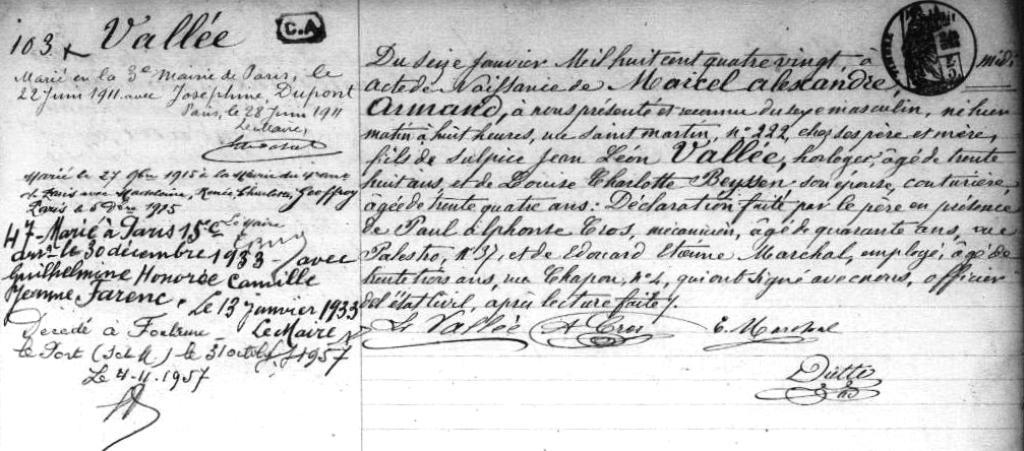 103 Vallée
C.A
Marié en la 3e Mairie de Paris, le
22 Juin 1911 avec Joséphine Dupont
Paris, le 28 Juin 1911
Le Maire,
Marié le 27 9bre 1915 à la Mairie du
de Paris avec Madeleine, Renée, Charlotte, Geoffroy
Paris le 6 Dbre 1915
Le Maire
47 - Marié à Paris 15e
arrt le 30 décembre 1933 - avec
Guilhelmine Honorée Camille
Jeanne Farenc. Le 13 janvier 1933
Le Maire
Décédé à
le Port (Set M) le 31 octobre 1957
Le 4-11-1957
Du seize janvier Mil huit cent quatre vingt, à midi
acte de Naissance de Marcel alexandre,
Armand, à nous présenté et reconnu du sexe masculin, né hier
matin à huit heures, rue Saint martin, n° 222, chez ses père et mère,
fils de Sulpice Jean Léon Vallée, horloger, âgé de trente
huit ans, et de Louise Charlotte Beyssen son épouse, couturière
agée de trente quatre ans: Déclaration faite par le père en présence
de Paul alphonse Cros, mécanicien, âgé de quarante ans, rue
Palestro, n° 37, et de Edouard Etienne Marchal, employé, âgé de
trente trois ans, rue Chapon, n° 4, qui ont signé avec nous, officier
de l'état civil, après lecture faite.
Vallée A Cros E. Marchal